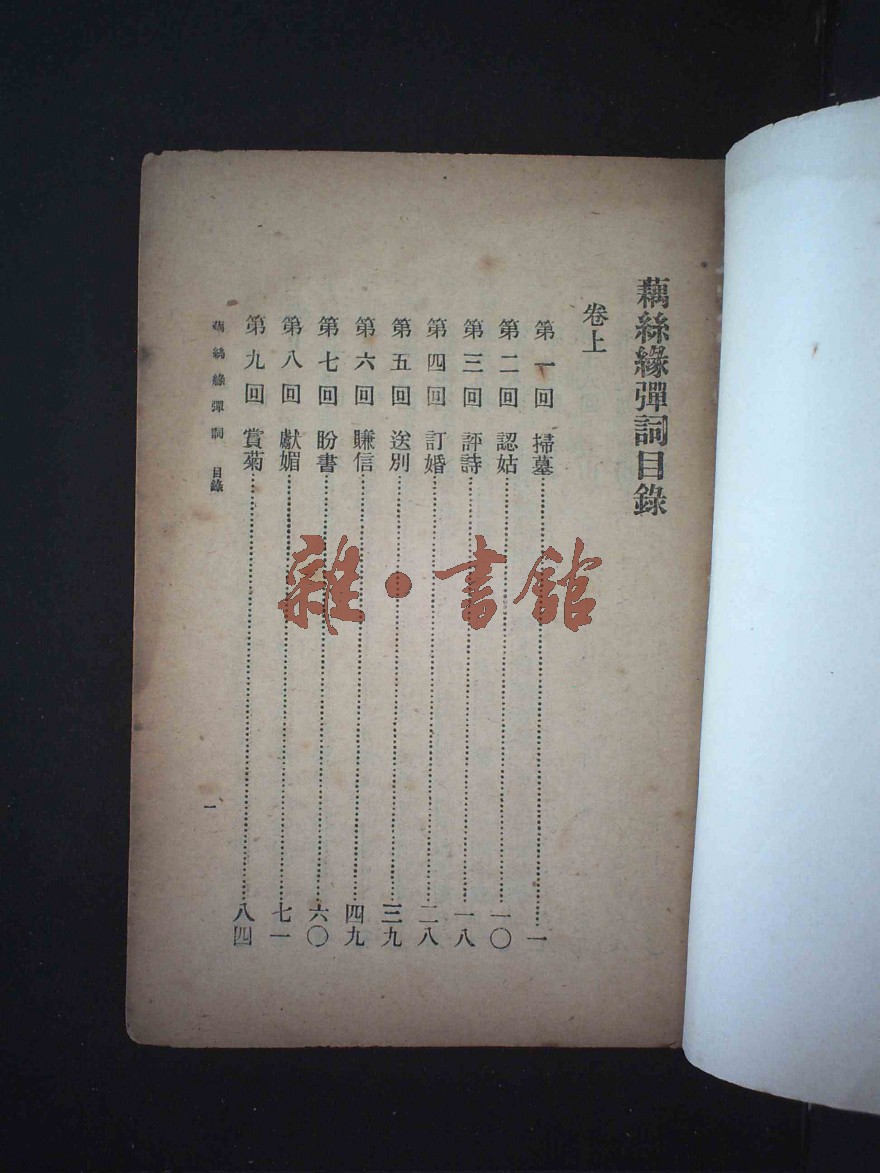 藕絲緣彈詞目錄
卷上
第一回 掃墓……一
第二回 認姑……一〇
第三回 評詩……一八
第四回 訂婚……二八
第五回 送別……三九
第六回 賺信……四九
第七回 盼書……六〇
第八回 獻媚……七一
第九回 賞菊……八四
藕絲緣彈詞 目錄
一
雜·書館